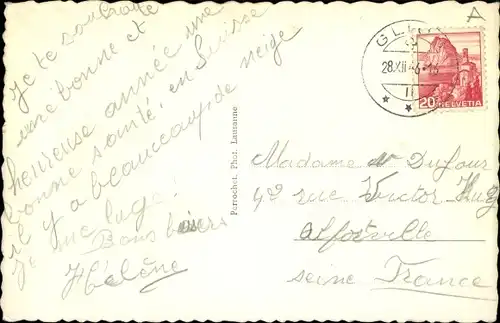 Je te souhaite
une bonne et
heureuse année une
bonne santé, en Suisse
il y a beaucoup de neige
je me luge!
Bons baisers
Hélène
Perrochet, Phot. Lausanne
A
28.XII.46
20 HELVETIA
Madame Dufour
42 rue Victor Hug
Alfortville
seine France